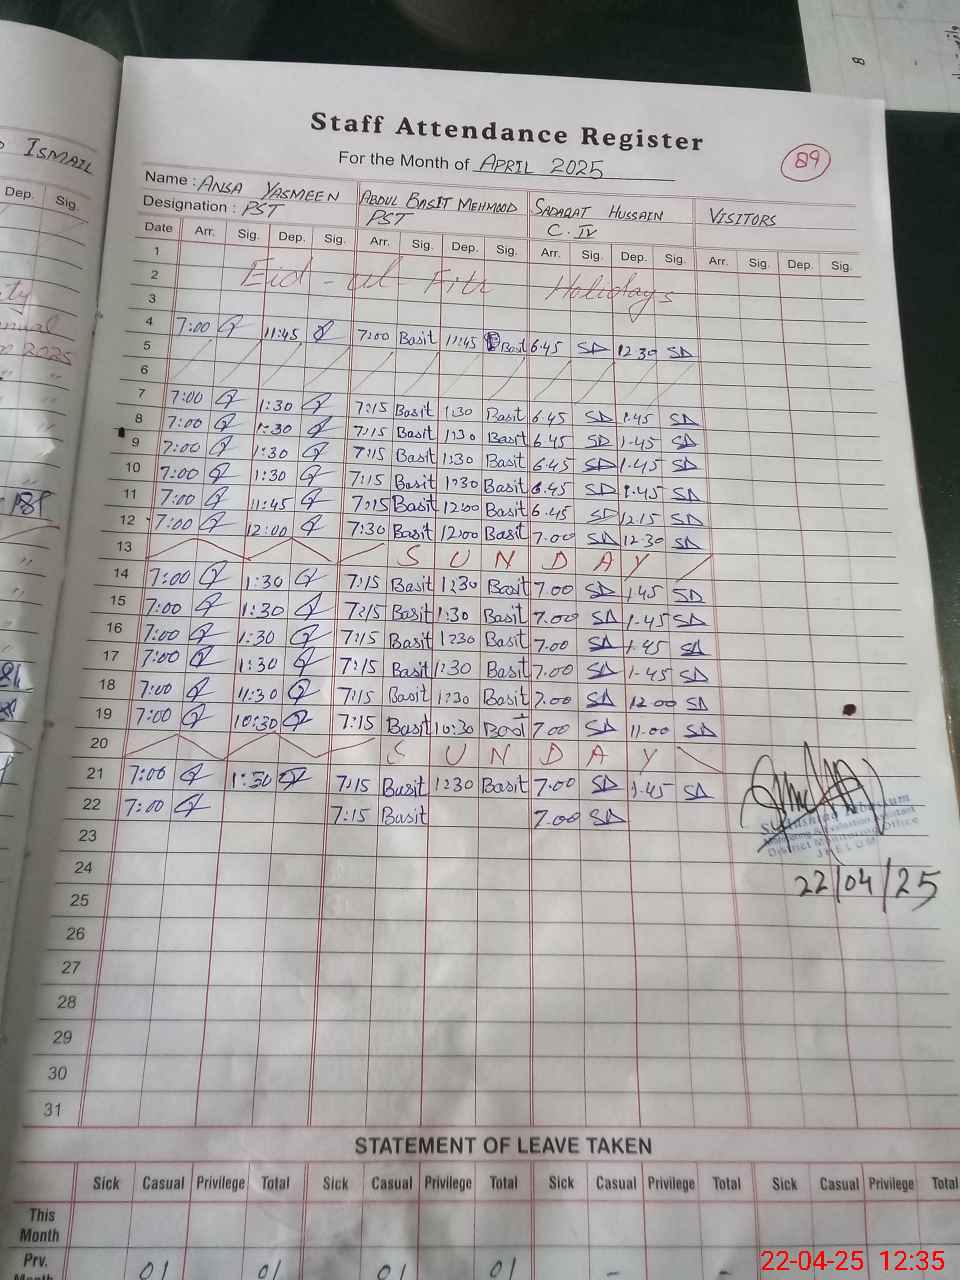 8
ISMAIL
Dep. Sig.
Staff Attendance Register
For the Month of APRIL 2025
89
Name : ANSA YASMEEN ABDUL BASIT MEHMOOD SADAQAT HUSSAIN VISITORS
Designation : PST PST C. IV
Date Arr. Sig. Dep. Sig. Arr. Sig. Dep. Sig. Arr. Sig. Dep. Sig. Arr. Sig. Dep. Sig.
1
2 Eid-ul Fitr Holidays
3
4 7:00 11:45 7:00 Basit 11:45 Basit 6.45 SD 12.30 SD
5
6
7 7:00 1:30 7:15 Basit 1:30 Basit 6.45 SD 1.45 SD
8 7:00 1:30 7:15 Basit 1:30 Basit 6.45 SD 1.45 SD
9 7:00 1:30 7:15 Basit 1:30 Basit 6.45 SD 1.45 SD
10 7:00 1:30 7:15 Basit 1:30 Basit 6.45 SD 1.45 SD
11 7:00 11:45 7:15 Basit 12:00 Basit 6.45 SD 12.15 SD
12 7:00 12:00 7:30 Basit 12:00 Basit 7.00 SD 12.30 SD
13 S U N D A Y
14 7:00 1:30 7:15 Basit 1:30 Basit 7.00 SD 1.45 SD
15 7:00 1:30 7:15 Basit 1:30 Basit 7.00 SD 1.45 SD
16 7:00 1:30 7:15 Basit 1:30 Basit 7.00 SD 1.45 SD
17 7:00 1:30 7:15 Basit 1:30 Basit 7.00 SD 1.45 SD
18 7:00 11:30 7:15 Basit 11:30 Basit 7.00 SD 12.00 SD
19 7:00 10:30 7:15 Basit 10:30 Basit 7.00 SD 11.00 SD
20 S U N D A Y
21 7:00 1:30 7:15 Basit 1:30 Basit 7.00 SD 1.45 SD
22 7:00 7:15 Basit 7.00 SD
23
District Monitoring Office
JHELUM
24
22/04/25
25
26
27
28
29
30
31
STATEMENT OF LEAVE TAKEN
Sick Casual Privilege Total Sick Casual Privilege Total Sick Casual Privilege Total Sick Casual Privilege Total
This
Month
Prv.
Month 01 01 01 01 - -
22-04-25 12:35